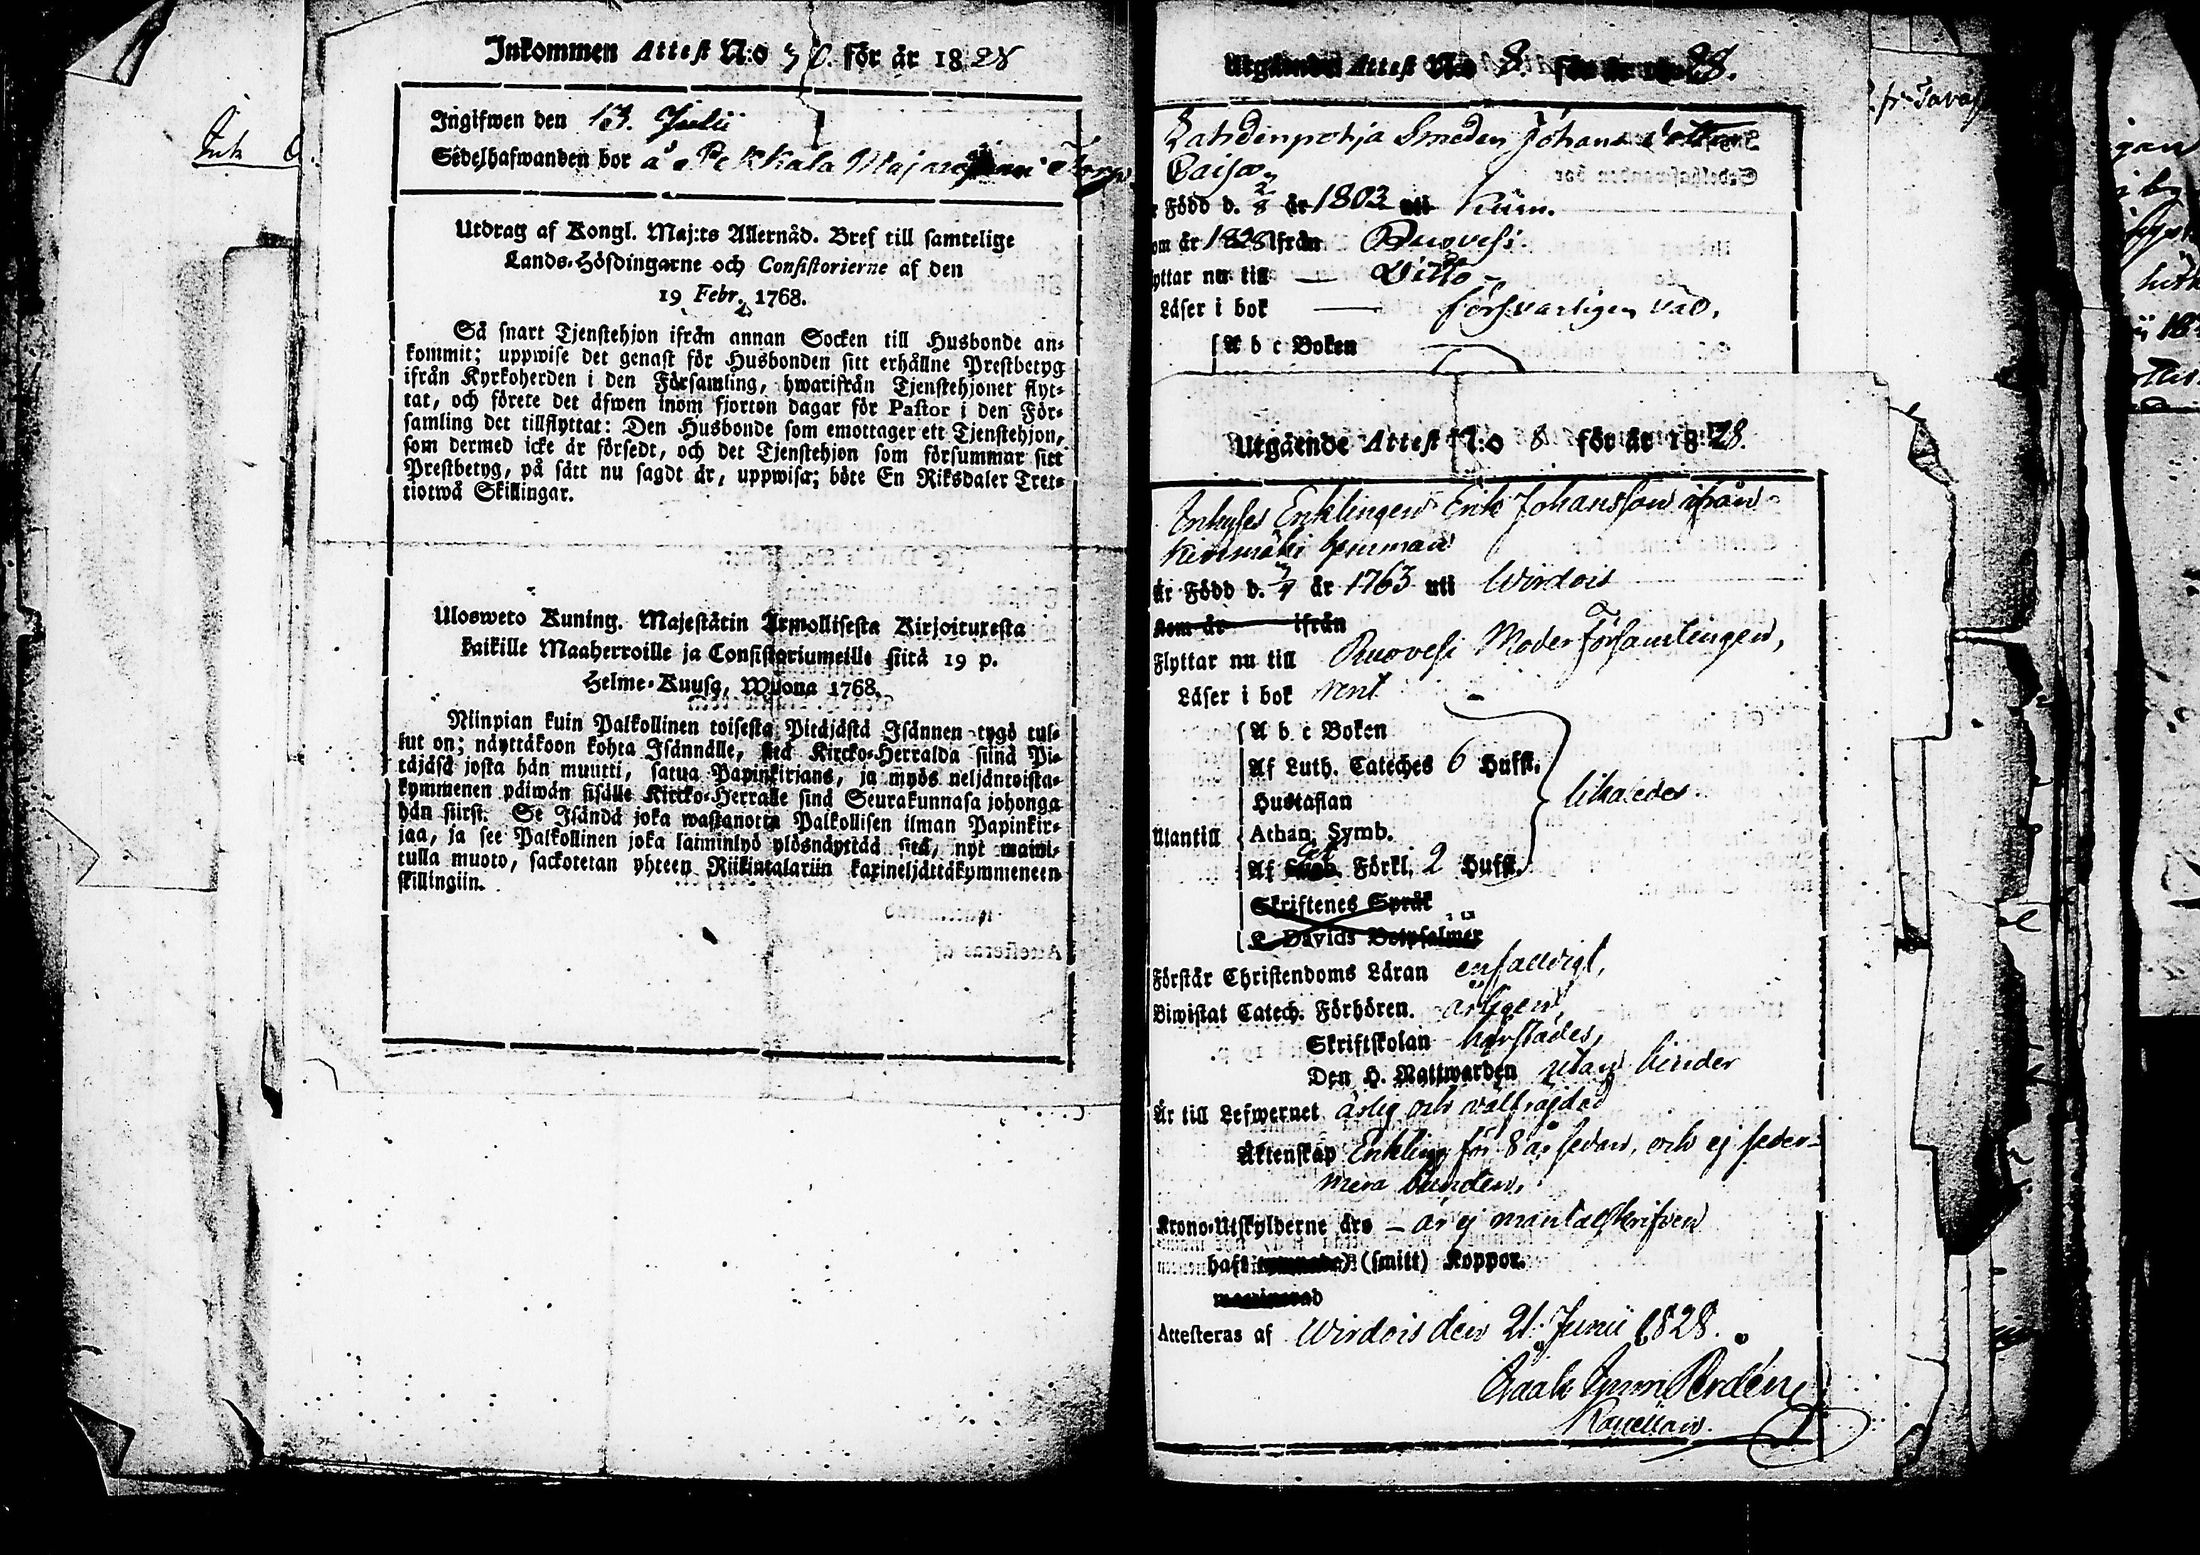 Inkommen Attest N:o 30. för år 1828
Ingifwen den 13. Julii
Sedelhafwanden bor å Pekkala Maja Torp
Utdrag af Kongl. Maj:ts Allernåd. Bref till samtelige
Lands-Höfdingarne och Consistorierne af den
19 Febr. 1768.
Så snart Tjenstehjon ifrån annan Socken till Husbonde an-
kommit; uppwise det genast för Husbonden sitt erhållne Prestbetyg
ifrån Kyrkoherden i den Församling, hwarifrån Tjenstehjonet flyt-
tat, och förete det äfwen inom fjorton dagar för Pastor i den För-
samling det tillflyttat: Den Husbonde som emottager ett Tjenstehjon,
som dermed icke är försedt, och det Tjenstehjon som försummar sitt
Prestbetyg, på sätt nu sagdt är, uppwisa; böte En Riksdaler Tret-
tiotwå Skillingar.
Ulosweto Kuning. Majestätin Armollisesta Kirjoituxesta
kaikille Maaherroille ja Consistoriumeille siitä 19 p.
Helme-Kuusa, Wuona 1768.
Niinpian kuin Palkollinen toisesta Pitäjästä Isännen tygö tul-
lut on; näyttäkoon kohta Isännälle, sitä Kircko-Herralda siinä Pi-
täjäsä josta hän muutti, satua Papinkirjans, ja myös neljäntoista-
kymmenen päiwän sisälle Kircko-Herralle sinä Seurakunnasa johonga
hän siirst. Se Isändä joka wastanotta Palkollisen ilman Papinkir-
jaa, ja see Palkollinen joka laiminlyö ylösnäyttää sitä, nyt mainit-
tulla muoto, sackotetan yhteen Riikintalariin kaxineljättäkymmeneen
skillingiin.
Utgående Attest N:o 8. för år 1828.
Lahdenpohja Smeden Johans dotter
Caisa
Född d. 2/8 år 1803 uti Kuru.
om år 1828 ifrån Ruovesi.
yttar nu till — Ditto —
Läser i bok — försvarligen väl,
A b c Boken
Utgående Attest N:o 8 för år 1828.
Inhyses Enklingen Erik Johansson ifrån
hemman
Är Född d. år 1763 uti Wirdois
Kom år ifrån
Flyttar nu till Ruovesi Moder Församlingen,
Läser i bok rent
A b c Boken
Af Luth. Cateches 6 Hufst.
Hustaflan likaledes
Utantill Athan. Symb.
Af Förkl. 2 Hufst.
Skriftenes Språk
K. Davids Botpsalmer
Förstår Christendoms Läran enfaldigt,
Biwistat Catech. Förhören. årligen
Skriftskolan härstädes,
Den H. Nattwarden utan hinder
Är till Lefwernet ärlig och välfrägdad
Äktenskap Enkling för 8 år sedan, och ej seder-
mera bunden,
Krono-Utskylderne äro — är ej mantalskrifven
haft (smitt) Koppor.
Attesteras af Wirdois den 21. Junii 1828.
Kapellan.